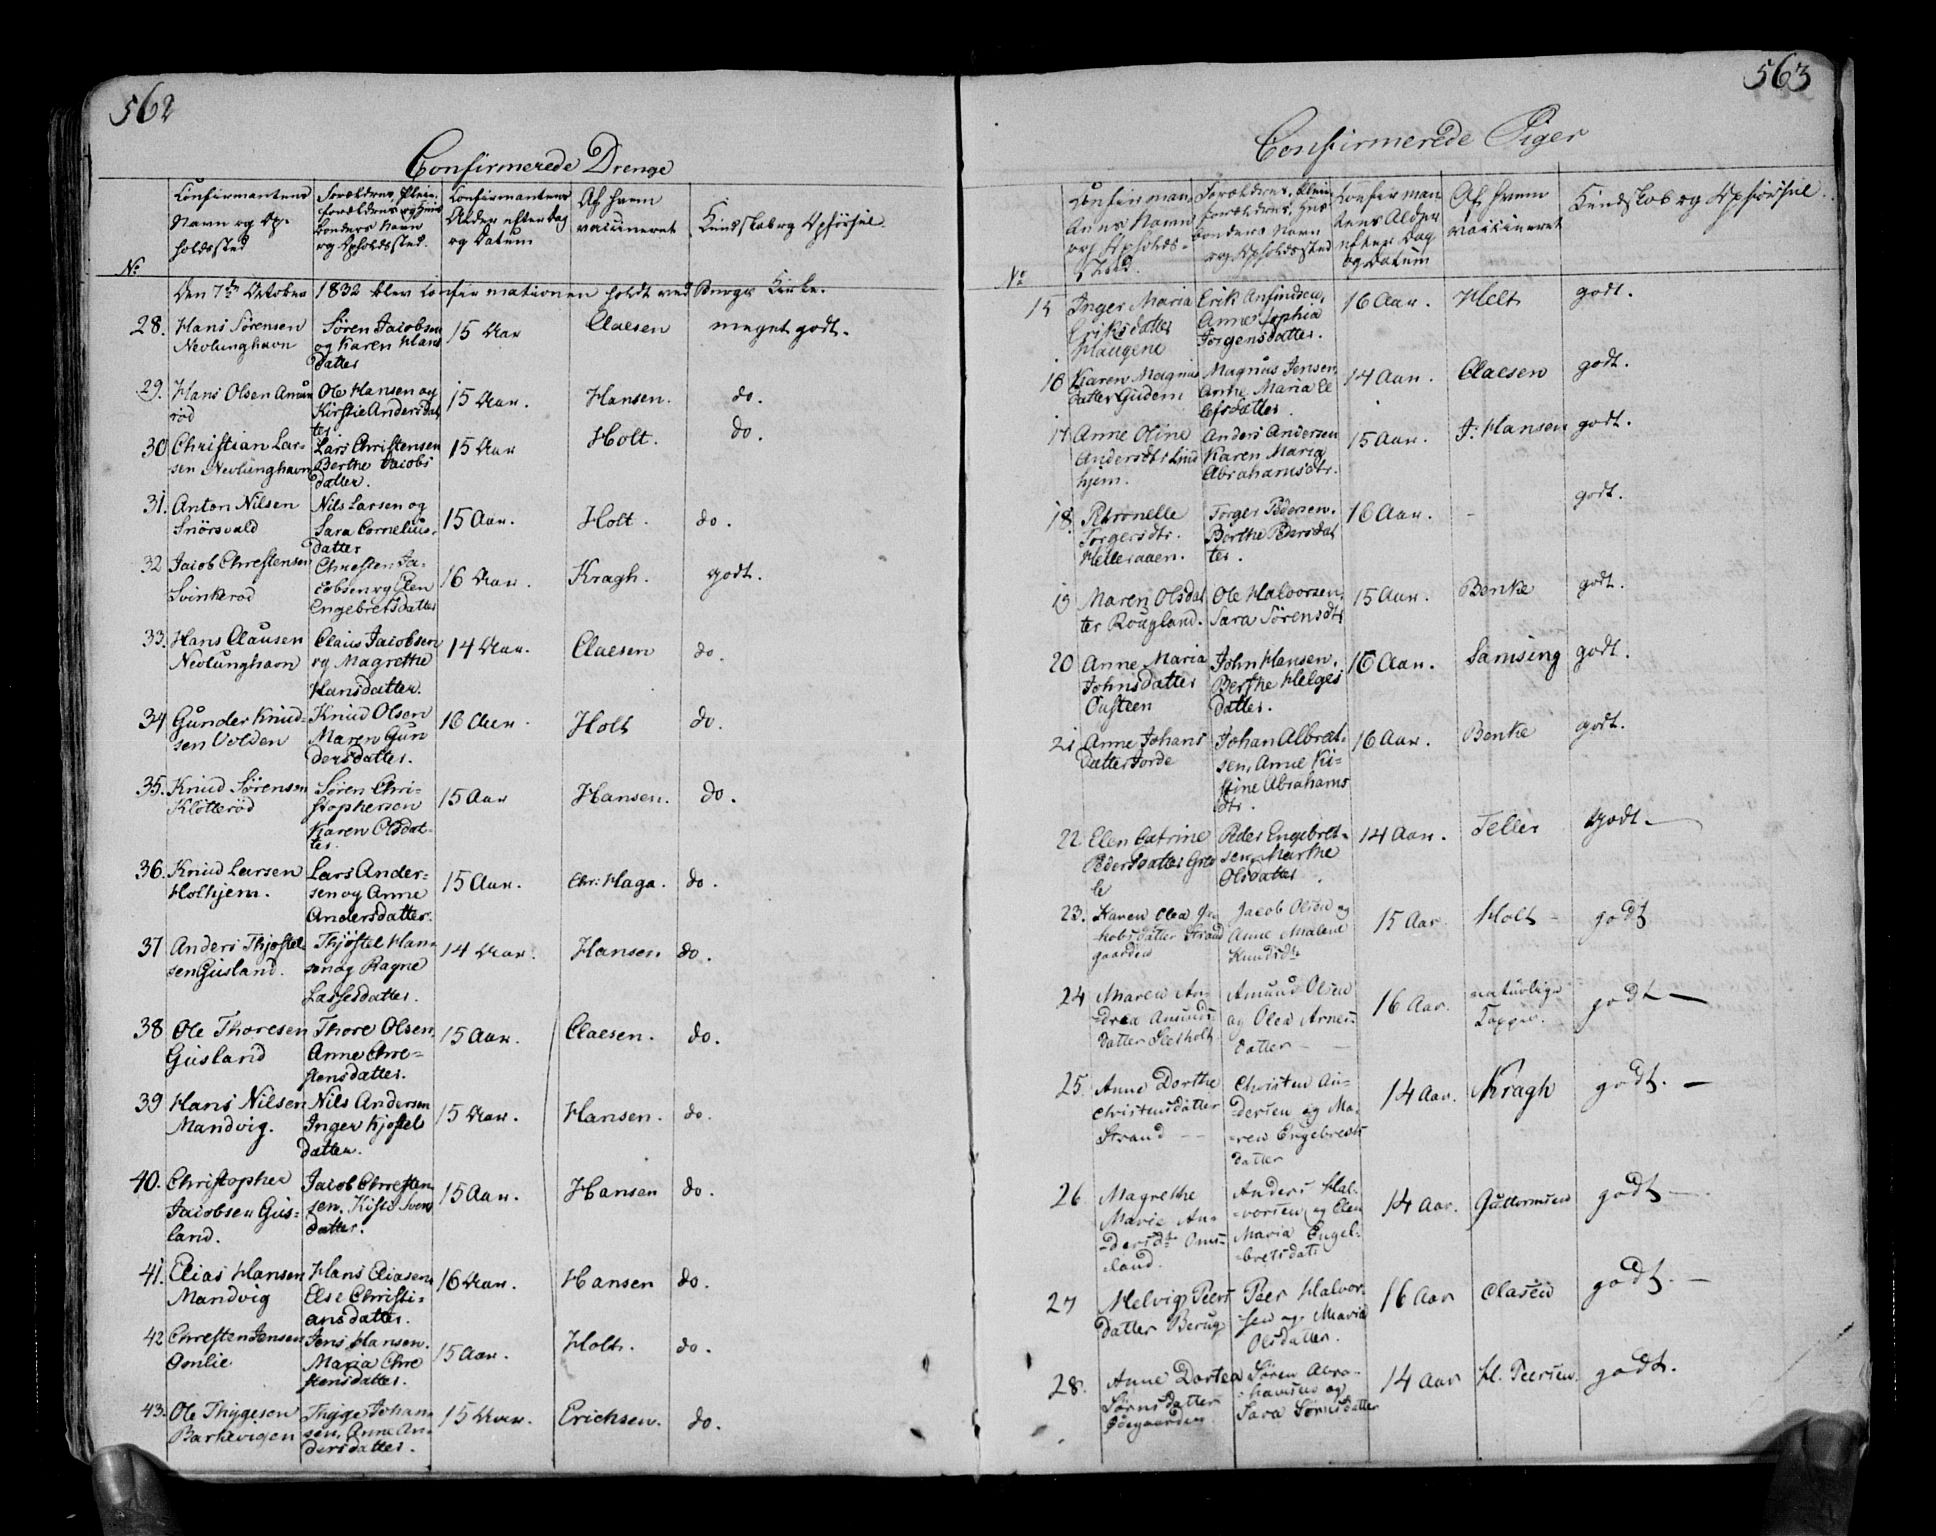 562
Confirmerede Drenge
Confirmantens
Navn og Op-
holdssted
Forældres, Pleie
forældres og Huus
bonders Navn
og Opholdssted.
Confirmantens
Alder efter dag
og Datum
Af hvem
vaccineret
Kundskab og Opførsel.
No
Den 7de October 1832 blev Confirmationen holdt ved Bergs Kirke.
28. Hans Sørensen
Nevlunghavn
Søren Jacobsen
og Karen Hans
datter
15 Aar
Claesen
meget godt.
29. Hans Olsen Amun
rød
Ole Hansen og
Kirstie Andersdat
ter
15 Aar.
Hansen.
do.
30 Christian Lar-
sen Nevlunghavn
Lars Christensen
Berthe Jacobs
datter.
15 Aar
Holt.
do.
31. Anton Nilsen
Snörsvald
Nils Larsen og
Sara Cornelius-
datter
15 Aar.
Holt.
do.
32 Jacob Chrestensen
Svinkerød
Chresten Ja-
cobsen og Elen
Engebretsdatter
16 Aar.
Kragh.
godt.
33. Hans Clausen
Nevlunghavn
Claus Jacobsen
og Magrethe
Hansdatter.
14 Aar.
Claesen
do.
34 Gunder Knud-
sen Volden
Knud Olsen
Maren Gun
dersdatter.
16 Aar.
Holt
do.
35. Knud Sørensen
Klotterød
Søren Chri-
stophersen
Karen Olsdat-
ter.
15 Aar
Hansen.
do.
36. Knud Larsen
Holhjem.
Lars Ander-
sen og Anne
Andersdatter.
15 Aar.
Chr: Haga.
do.
37 Anders Thjøstel
sen Gusland.
Thjøstel Han-
sen og Ragne
Larsesdatter.
14 Aar.
Hansen
do.
38 Ole Thoresen
Gusland
Thore Olsen,
Anne Chre-
stensdatter.
15 Aar.
Claesen.
do.
39 Hans Nilsen
Mandvig.
Nils Andersen
Inger Kjøstel
datter.
15 Aar.
Hansen.
do.
40. Christopher
Jacobsen Gus-
land.
Jacob Chresten
sen, Kisti Svens
datter.
15 Aar.
Hansen
do.
41. Elias Hansen
Mandvig
Hans Eliasen,
Else Christi-
ansdatter.
16 Aar.
Hansen
do.
42 Chresten Jensen
Omlie
Jens Hansen.
Maria Chre
stensdatter.
15 Aar.
Holt.
do.
43. Ole Thygesen
Barkevigen
Thyge Johan-
sen, Anne An-
dersdatter.
15 Aar.
Erichsen.
do.
563
Confirmerede Piger
Confirman
tens Navn
og Opholds-
sted.
Forældres, Pleie
forældres, Huus
bonders Navn
og Opholdssted
Confirman
tens Alder
efter Dag
og Datum
Af hvem
vaccineret
Kundskab og Opførsel.
No
15 Inger Maria
Eriksdatter
Haugene
Erik Anfindsen,
Anne Sophia
Jorgensdatter.
16 Aar.
Holt
godt.
16 Karen Magnus
datter Gudem
Magnus Jensen,
Anne Maria El
lefsdatter.
14 Aar.
Claesen
godt.
17 Anne Oline
Andersdtr Lind
hjem.
Anders Andersen
Karen Maria
Abrahamsdtr.
15 Aar.
J: Hansen
godt.
18. Petronelle
Torgersdtr.
Helleraaen.
Torger Pedersen.
Berthe Pedersdat
ter.
16 Aar.
-
godt.
19 Maren Olsdat
ter Rougland.
Ole Halvorsen,
Sara Sørensdtr
15 Aar.
Benke
godt.
20 Anne Maria
Johnsdatter
Ousteen
John Hansen,
Berthe Helges
datter.
16 Aar.
Samsing
godt.
21 Anne Johans
datter Jorde
Johan Albret-
sen, Anne Ki-
stine Abrahams
dtr.
16 Aar.
Benke
godt.
22 Elen Catrine
Pedersdatter Gre
le
Peder Engebret-
sen, Marthe
Olsdatter.
14 Aar.
Teller
godt.
23. Karen Olea Ja-
kobsdatter Strand
gaarden
Jacob Olsen og
Anne Malene
Knudsdtr
15 Aar
Holt -
godt
24 Maren An-
drea Amunds-
datter Sletholt
Amund Olsen
og Olea Arnes-
datter -
16 Aar.
naturlige
Kopper.
godt -
25. Anne Dorthe
Christensdatter
Strand -
Christen An-
dersen og Ma-
ren Engebrets
datter
14 Aar.
Kragh
godt. -
26 Magrethe
Marie An-
dersdtr Oms-
land.
Anders Hal-
vorsen, og Elen
Maria Engel-
bretsdatr
14 Aar.
Guttormsen
godt -
27 Helvig Peers
datter Berug
Peer Halvor-
sen og Maria
Olsdatter.
16 Aar
Clasen
godt. -
28. Anne Dortea
Sørnsdatter
Ødegaarden
Søren Abra-
hamsen og
Sara Sørnsdatter
14 Aar
H. Peersen.
godt.